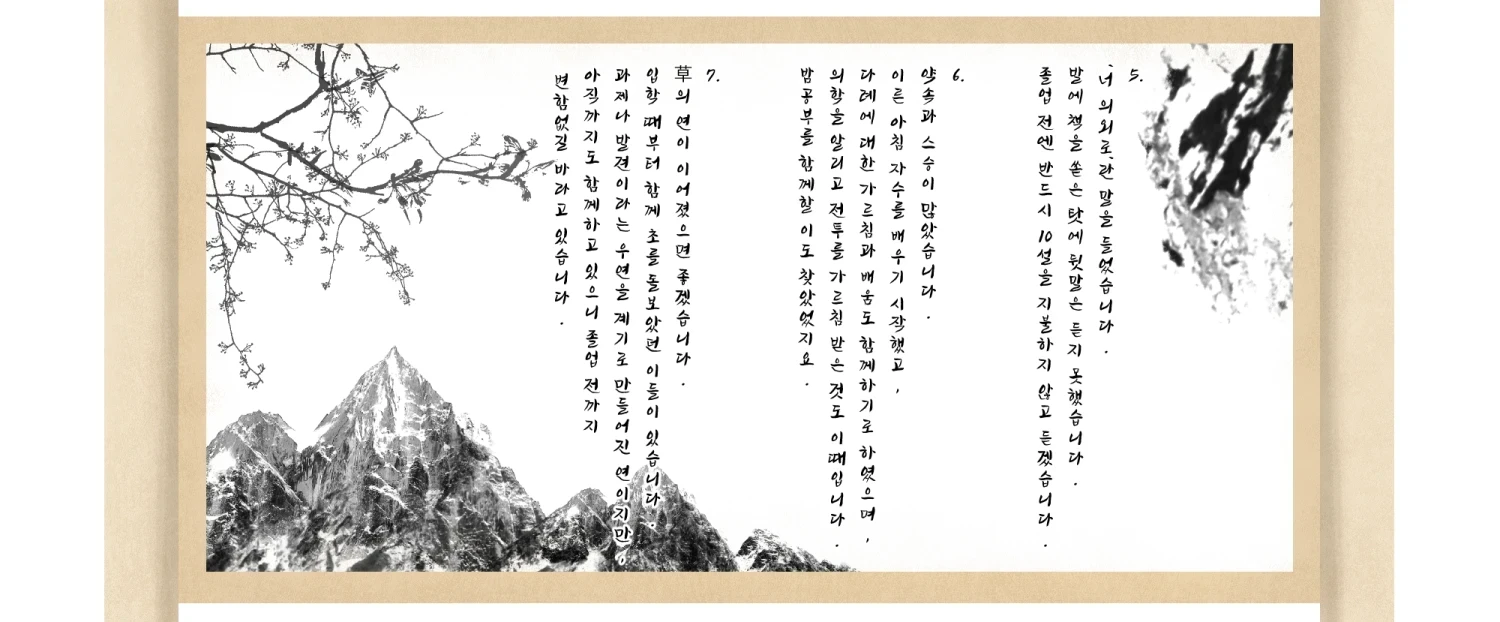 5.
'너 의외로,'란 말을 들었습니다.
발에 책을 쏟은 탓에 뒷말은 듣지 못했습니다.
졸업 전엔 반드시 10설을 지불하지 않고 듣겠습니다.
6.
약속과 스승이 많았습니다.
이른 아침 자수를 배우기 시작했고,
다례에 대한 가르침과 배움도 함께하기로 하였으며,
의학을 알리고 전투를 가르침 받은 것도 이때입니다.
밤공부를 함께할 이도 찾았었지요.
7.
草의 연이 이어졌으면 좋겠습니다.
입학 때부터 함께 초를 돌보았던 이들이 있습니다.
과제나 발견이라는 우연을 계기로 만들어진 연이지만,
아직까지도 함께하고 있으니 졸업 전까지
변함없길 바라고 있습니다.